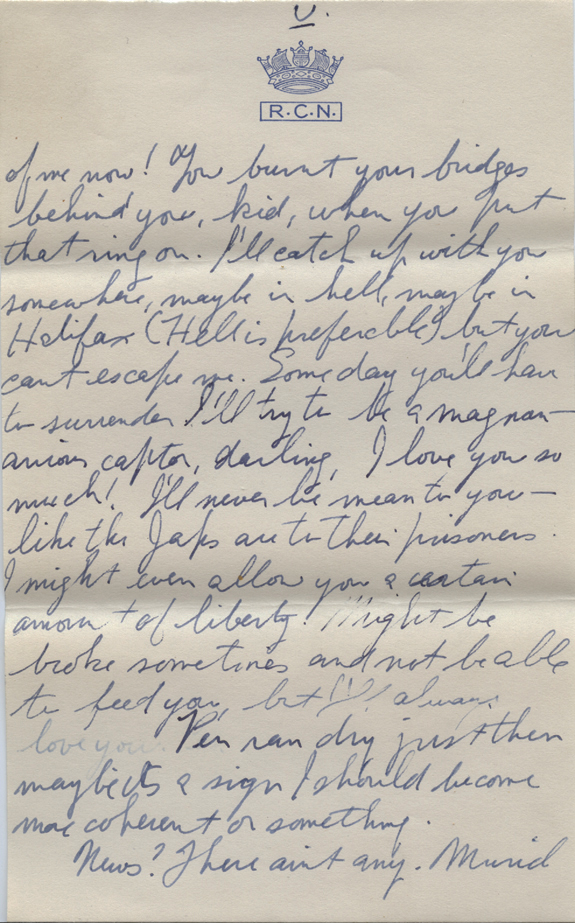 V.
R.C.N.
of me now! You burnt your bridges
behind you, kid, when you put
that ring on. I'll catch up with you
somewhere, maybe in hell, maybe in
Halifax (Hell is preferable) but you
cant escape me. Some day you'll have
to surrender I'll try to be a magnan-
amious captor, darling, I love you so
much! I'll never be mean to you—
like the Japs are to their prisoners.
I might even allow you a certain
amount of liberty! Might be
broke sometimes and not be able
to feed you, but I'll always
love you. Pen ran dry just then
maybe its a sign I should become
more coherent or something.
News? There aint any. Murid